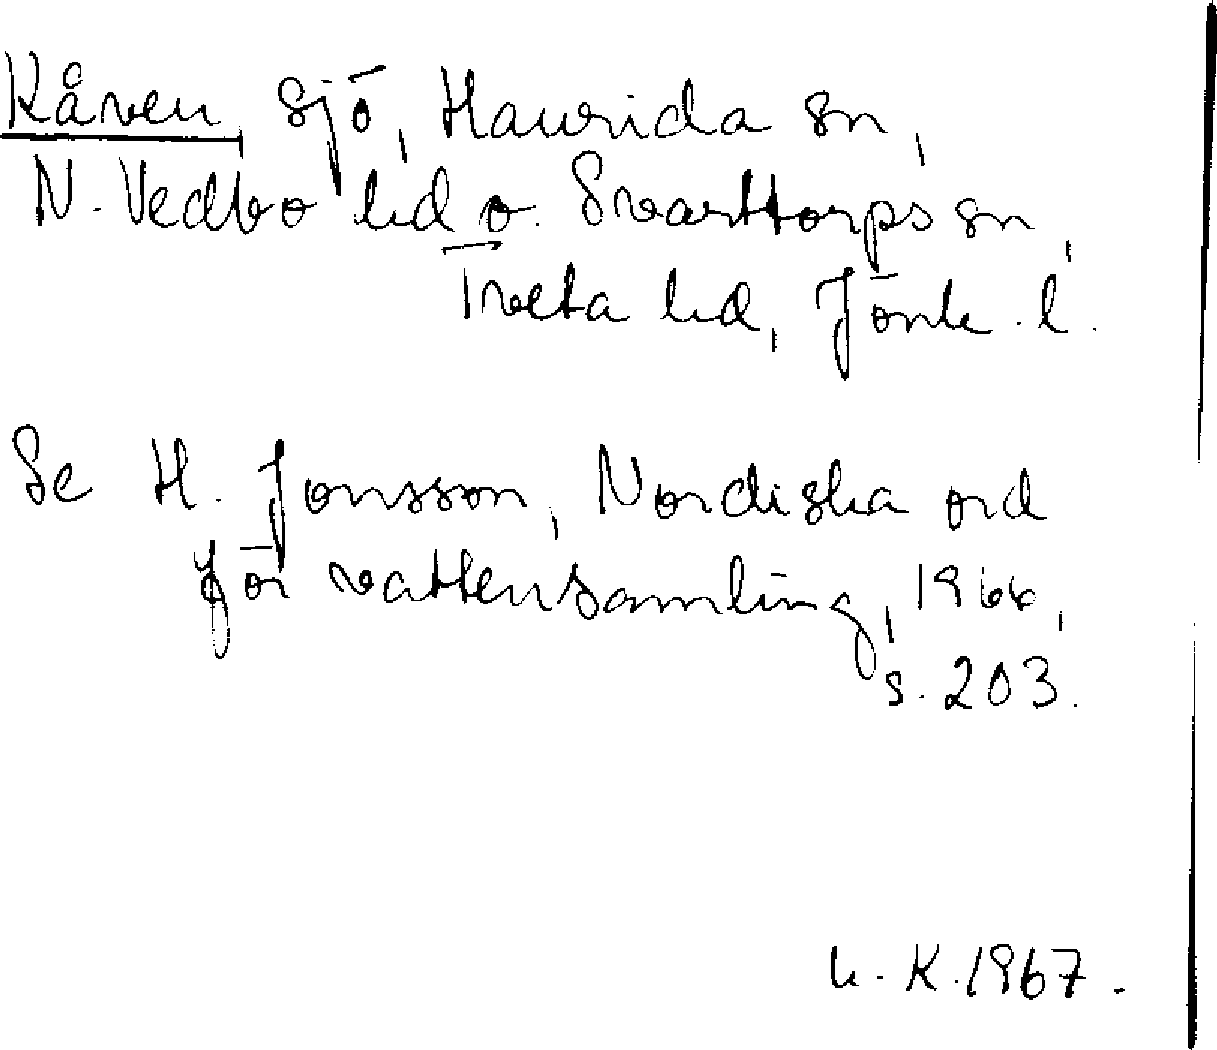 Kåven, sjö, Haurida sn,
N. Vedbo hd o. Svarttorps sn,
Tveta hd, Jönk. l.
Se H. Jonsson, Nordiska ord
för vattensamling, 1966,
s. 203.
K. 1967.